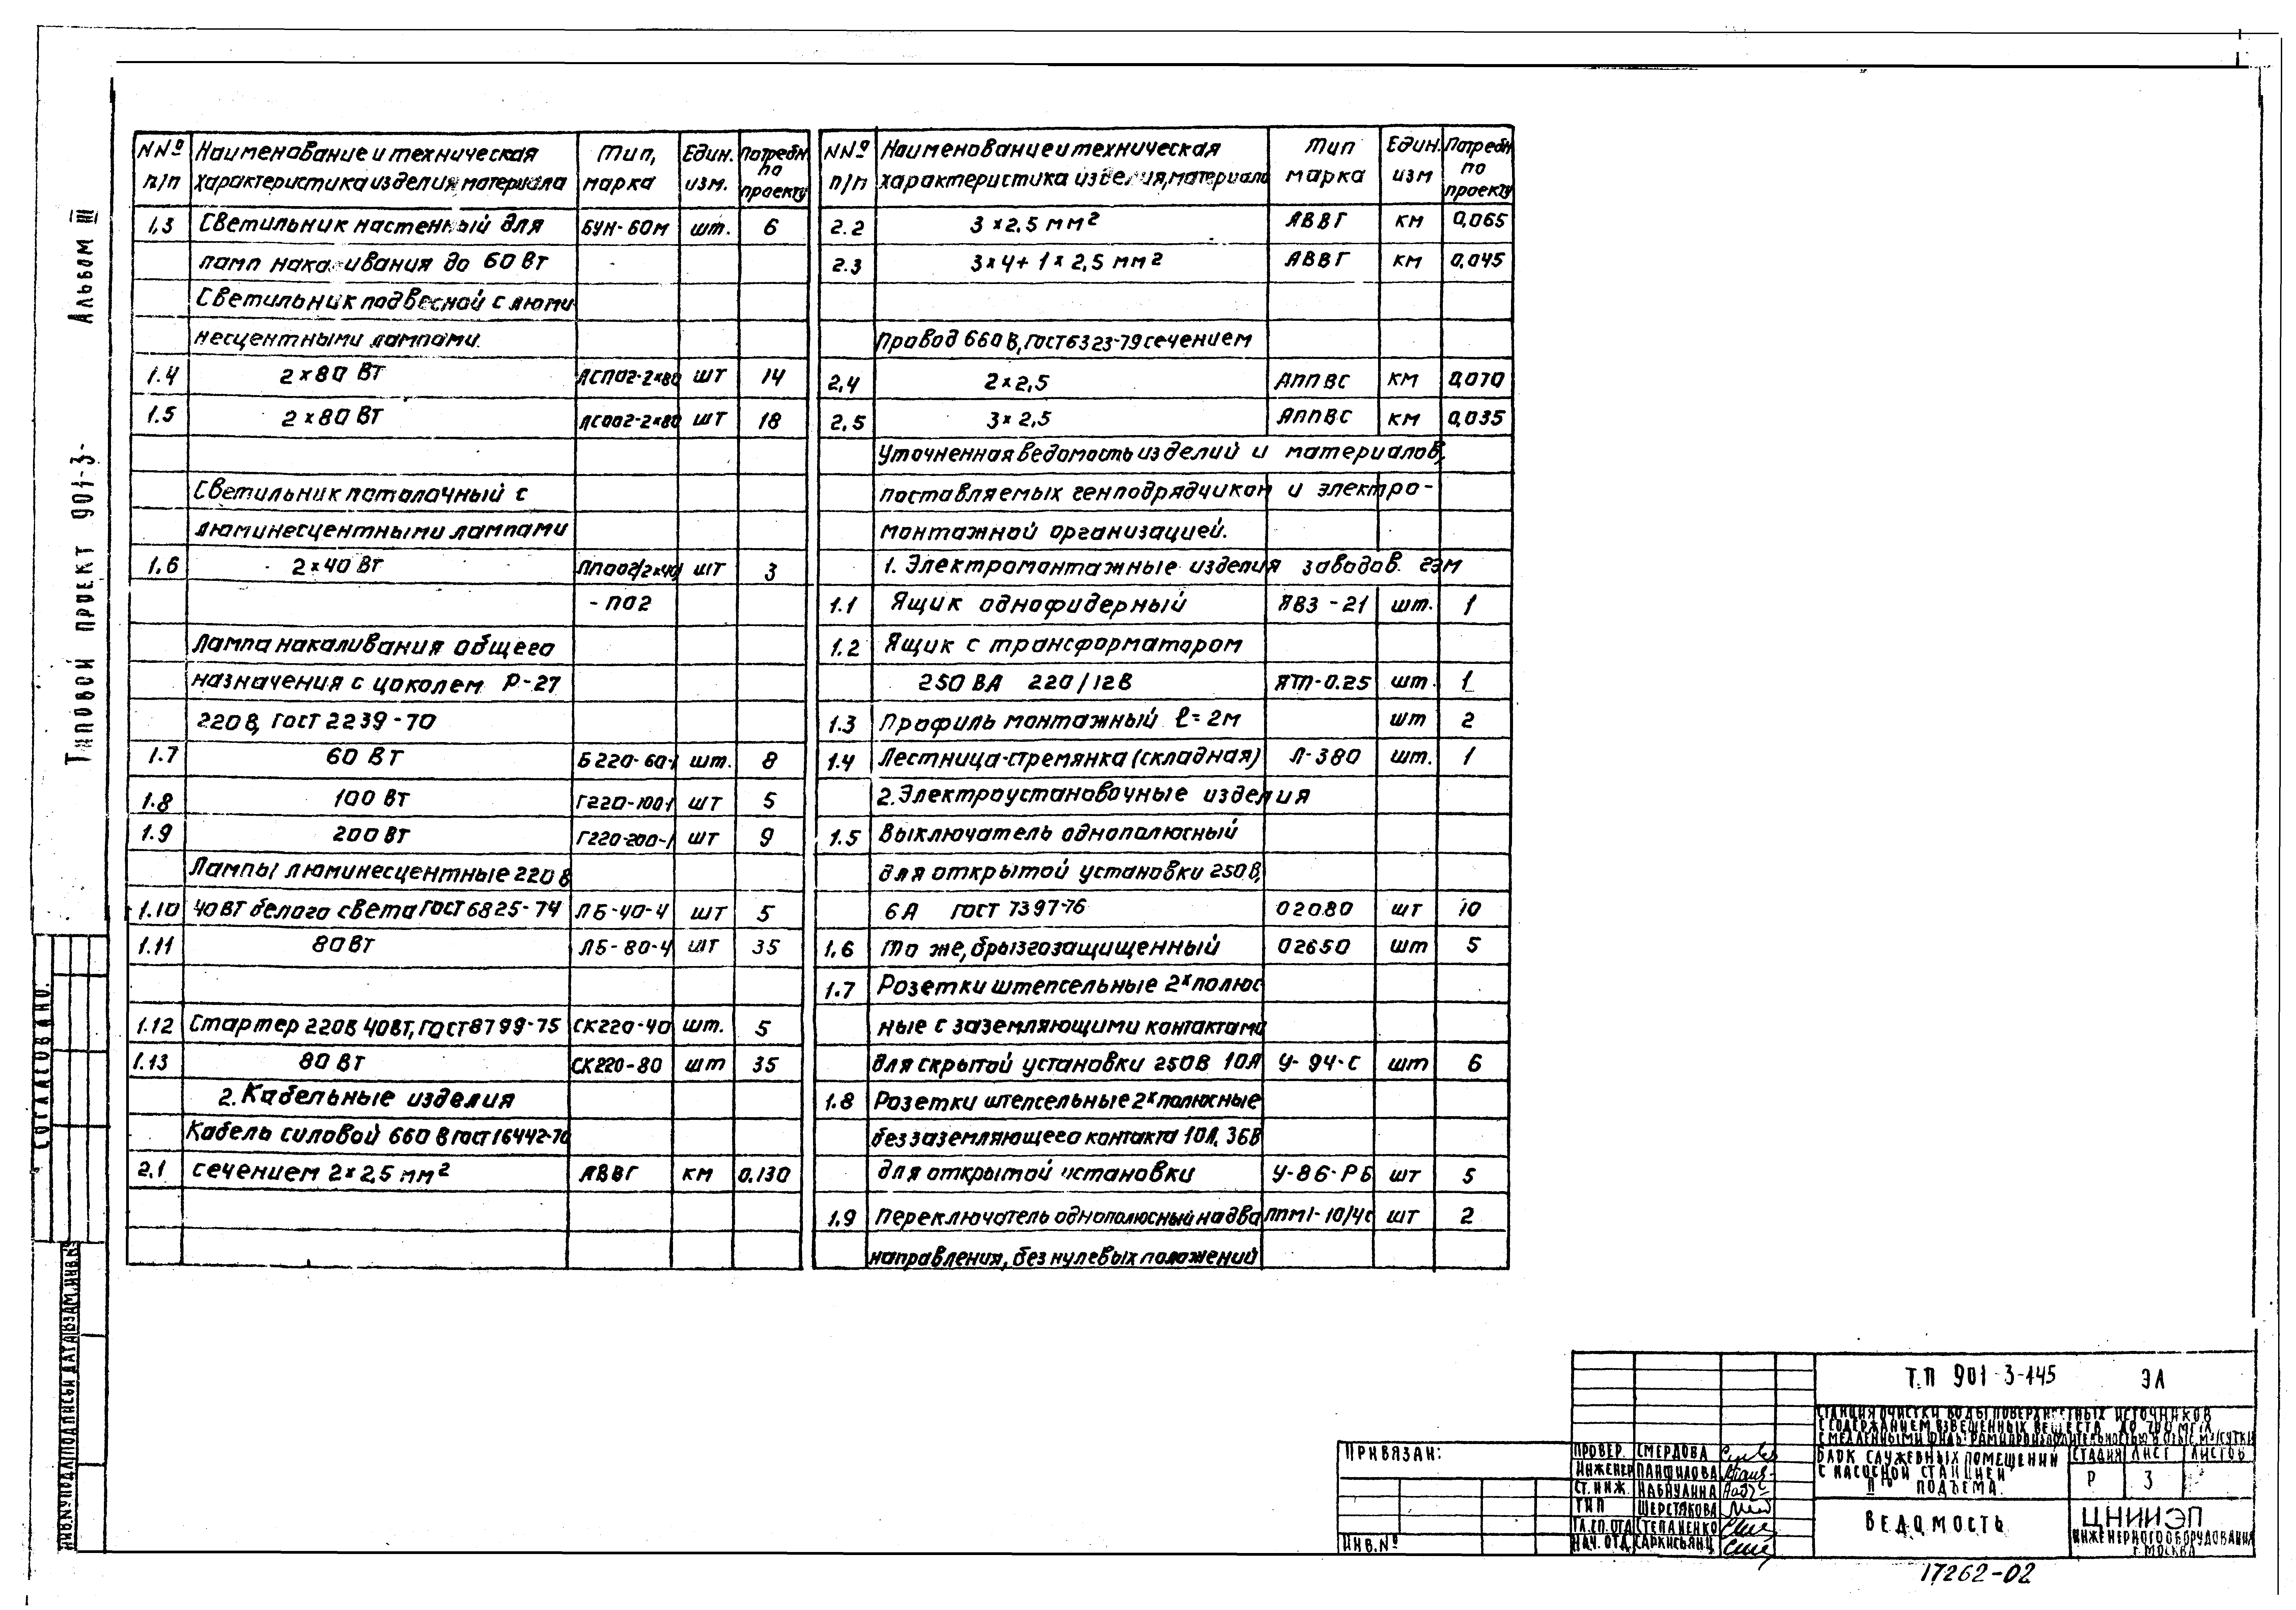 Альбом III
Типовой проект 901-3-
СОГЛАСОВАНО:
ИНВ.№ПОДЛ ПОДПИСЬ И ДАТА ВЗАМ.ИНВ.№
NNº Наименование и техническая Тип, Един. Потребн
п/п характеристика изделия, материала марка изм. по проекту
1.3 Светильник настенный для БУН-60м шт. 6
ламп накаливания до 60 Вт
Светильник подвесной с люми
несцентными лампами.
1.4 2×80 Вт ЛСП02-2×80 шт 14
1.5 2×80 Вт ЛСО02-2×80 шт 18
Светильник потолочный с
люминесцентными лампами
1.6 2×40 Вт шт 3
-П02
Лампа накаливания общего
назначения с цоколем Р-27
220В, ГОСТ 2239-70
1.7 60 Вт Б220-60-1 шт. 8
1.8 100 Вт Г220-100-1 шт 5
1.9 200 Вт Г220-200-1 шт 9
Лампы люминесцентные 220 В
1.10 40Вт белого света ГОСТ 6825-74 ЛБ-40-4 шт 5
1.11 80Вт ЛБ-80-4 шт 35
1.12 Стартер 220В 40Вт, ГОСТ 8799-75 СК220-40 шт. 5
1.13 80 Вт СК220-80 шт 35
2. Кабельные изделия
Кабель силовой 660 В ГОСТ 16442-70
2.1 сечением 2×2,5 мм² АВВГ км 0,130
NNº Наименование и техническая Тип Един. Потребн
п/п характеристика изделия, материала марка изм по проекту
2.2 3×2,5 мм² АВВГ км 0,065
2.3 3×4+1×2,5 мм² АВВГ км 0,045
Провод 660 В, ГОСТ 6323-79 сечением
2.4 2×2,5 АППВС км 0,070
2.5 3×2,5 АППВС км 0,035
Уточненная ведомость изделий и материалов,
поставляемых генподрядчиком и электро-
монтажной организацией.
1. Электромонтажные изделия заводов ГЭМ
1.1 Ящик однофидерный ЯВЗ-21 шт. 1
1.2 Ящик с трансформатором
250 ВА 220/12В ЯТП-0.25 шт. 1
1.3 Профиль монтажный ℓ=2м шт 2
1.4 Лестница-стремянка (складная) Л-380 шт. 1
2. Электроустановочные изделия
1.5 Выключатель однополюсный
для открытой установки 250В,
6А ГОСТ 7397-76 02080 шт 10
1.6 То же, брызгозащищенный 02650 шт 5
1.7 Розетки штепсельные 2ˣ полюс
ные с заземляющими контактами
для скрытой установки 250В 10А У-94-С шт 6
1.8 Розетки штепсельные 2ˣ полюсные
без заземляющего контакта 10А, 36В
для открытой установки У-86-РБ шт 5
1.9 Переключатель однополюсный на два ППМ1-10/Чс шт 2
направления, без нулевых положений
ПРИВЯЗАН:
ИНВ.Nº
ПРОВЕР. СМЕРДОВА
ИНЖЕНЕР ПАНФИЛОВА
СТ.ИНЖ. НАБИУЛИНА
ГИП ШЕРСТЯКОВА
ГЛ.СП.ОТД СТЕПАНЕНКО
НАЧ.ОТД САРКИСЬЯНЦ
Т.П 901-3-145 ЭЛ
СТАНЦИЯ ОЧИСТКИ ВОДЫ ПОВЕРХНОСТНЫХ ИСТОЧНИКОВ
С СОДЕРЖАНИЕМ ВЗВЕШЕННЫХ ВЕЩЕСТВ ДО 700 МГ/Л
БЛОК СЛУЖЕБНЫХ ПОМЕЩЕНИЙ
С НАСОСНОЙ СТАНЦИЕЙ
IIго ПОДЪЕМА.
СТАДИЯ ЛИСТ ЛИСТОВ
Р 3
ВЕДОМОСТЬ
ЦНИИЭП
ИНЖЕНЕРНОГО ОБОРУДОВАНИЯ
Г. МОСКВА
17262-02